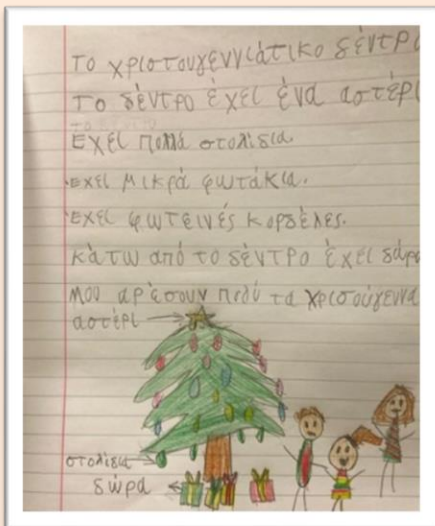 Το χριστουγεννιάτικο δέντρ
Το δέντρο έχει ένα αστέρι
Έχει πολλά στολίδια.
Έχει μικρά φωτάκια.
Έχει φωτεινές κορδέλες.
κάτω από το δέντρο έχει δώρα
μου αρέσουν πολύ τα χρισούγεννα
αστέρι
στολίδια
δώρα